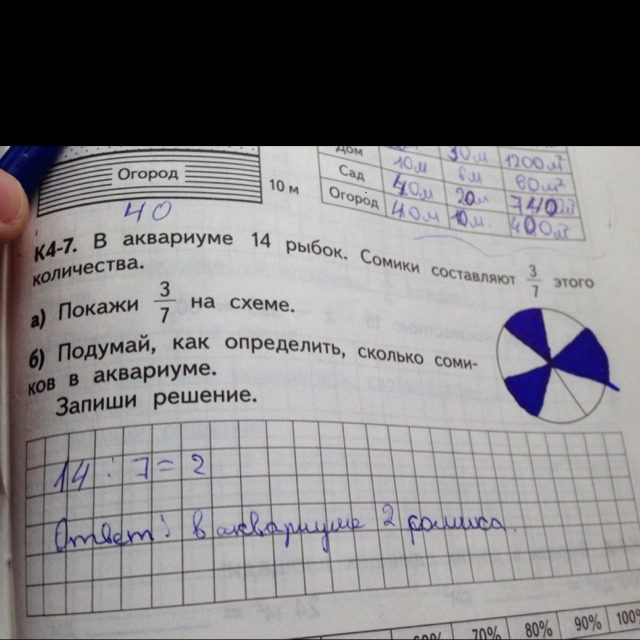 Дом 30м 1200м²
Огород 10 м Сад 10м 8м 80м²
Огород 40м 20м 740м²
40 40м 10м. 400м²
К4-7. В аквариуме 14 рыбок. Сомики составляют 3/7 этого
количества.
а) Покажи 3/7 на схеме.
б) Подумай, как определить, сколько соми-
ков в аквариуме.
Запиши решение.
14 : 7 = 2
Ответ: в аквариуме 2 сомика.
70% 80% 90% 100%